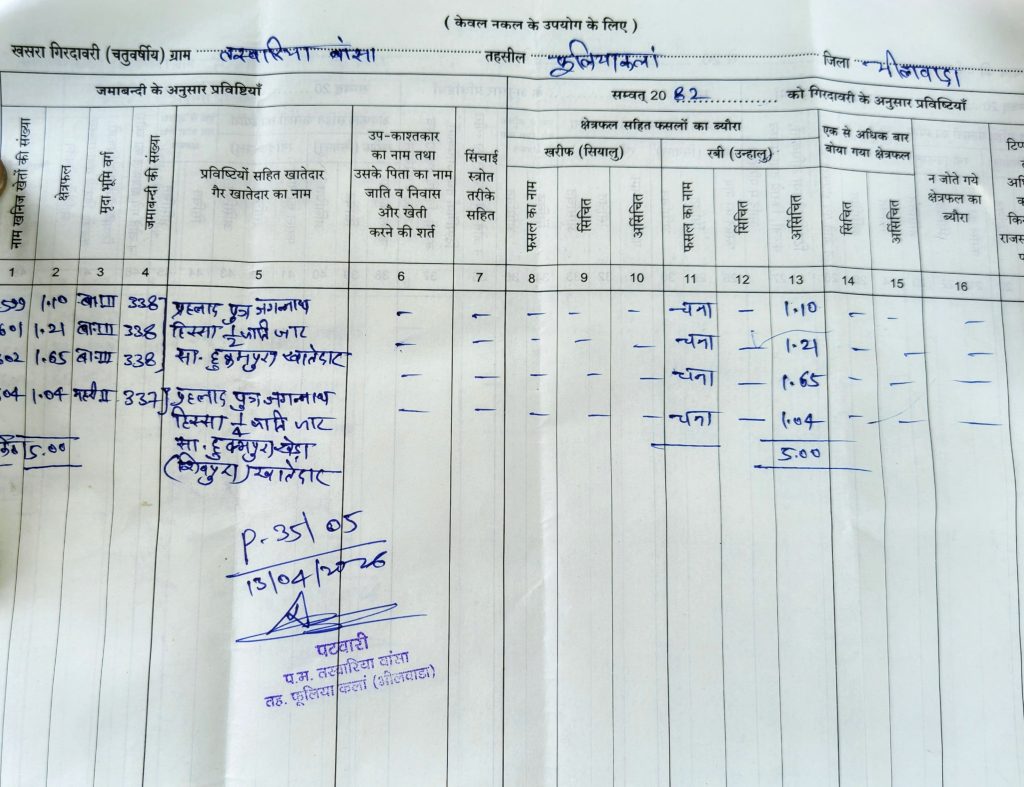 ( केवल नकल के उपयोग के लिए )
खसरा गिरदावरी (चतुवर्षीय) ग्राम तस्वारिया बांसा तहसील फूलियाकलां जिला भीलवाडा
जमाबन्दी के अनुसार प्रविष्टियाँ सम्वत् 2082 को गिरदावरी के अनुसार प्रविष्टियाँ
नाम खनिज खेतों की संख्या
क्षेत्रफल
मृदा भूमि वर्ग
जमाबन्दी की संख्या
प्रविष्टियों सहित खातेदार
गैर खातेदार का नाम
उप-काश्तकार
का नाम तथा
उसके पिता का नाम
जाति व निवास
और खेती
करने की शर्त
सिंचाई
स्त्रोत
तरीके
सहित
क्षेत्रफल सहित फसलों का ब्यौरा
खरीफ (सियालु) रबी (उन्हालु)
फसल का नाम
सिंचित
असिंचित
फसल का नाम
सिंचित
असिंचित
एक से अधिक बार
बोया गया क्षेत्रफल
सिंचित
असिंचित
न जोते गये
क्षेत्रफल का
ब्यौरा
1 2 3 4 5 6 7 8 9 10 11 12 13 14 15 16
599 1.10 बा.III 338 प्रहलाद पुत्र जगन्नाथ - - - - - चना - 1.10 - - -
601 1.21 बा.III 338 हिस्सा 1/2 जाति जाट - - - - - चना - 1.21 - - -
602 1.65 बा.III 338 सा. हुकमपुरा खातेदार - - - - - चना - 1.65 - - -
04 1.04 337 प्रहलाद पुत्र जगन्नाथ - - - - - चना - 1.04 - - -
हिस्सा 1/4 जाति जाट
5.00 सा. हुकमपुरा खेड़ा 5.00
(शिवपुरा) खातेदार
P-35/05
13/04/2026
पटवारी
प.म. तस्वारिया बांसा
तह. फूलिया कलां (भीलवाडा)